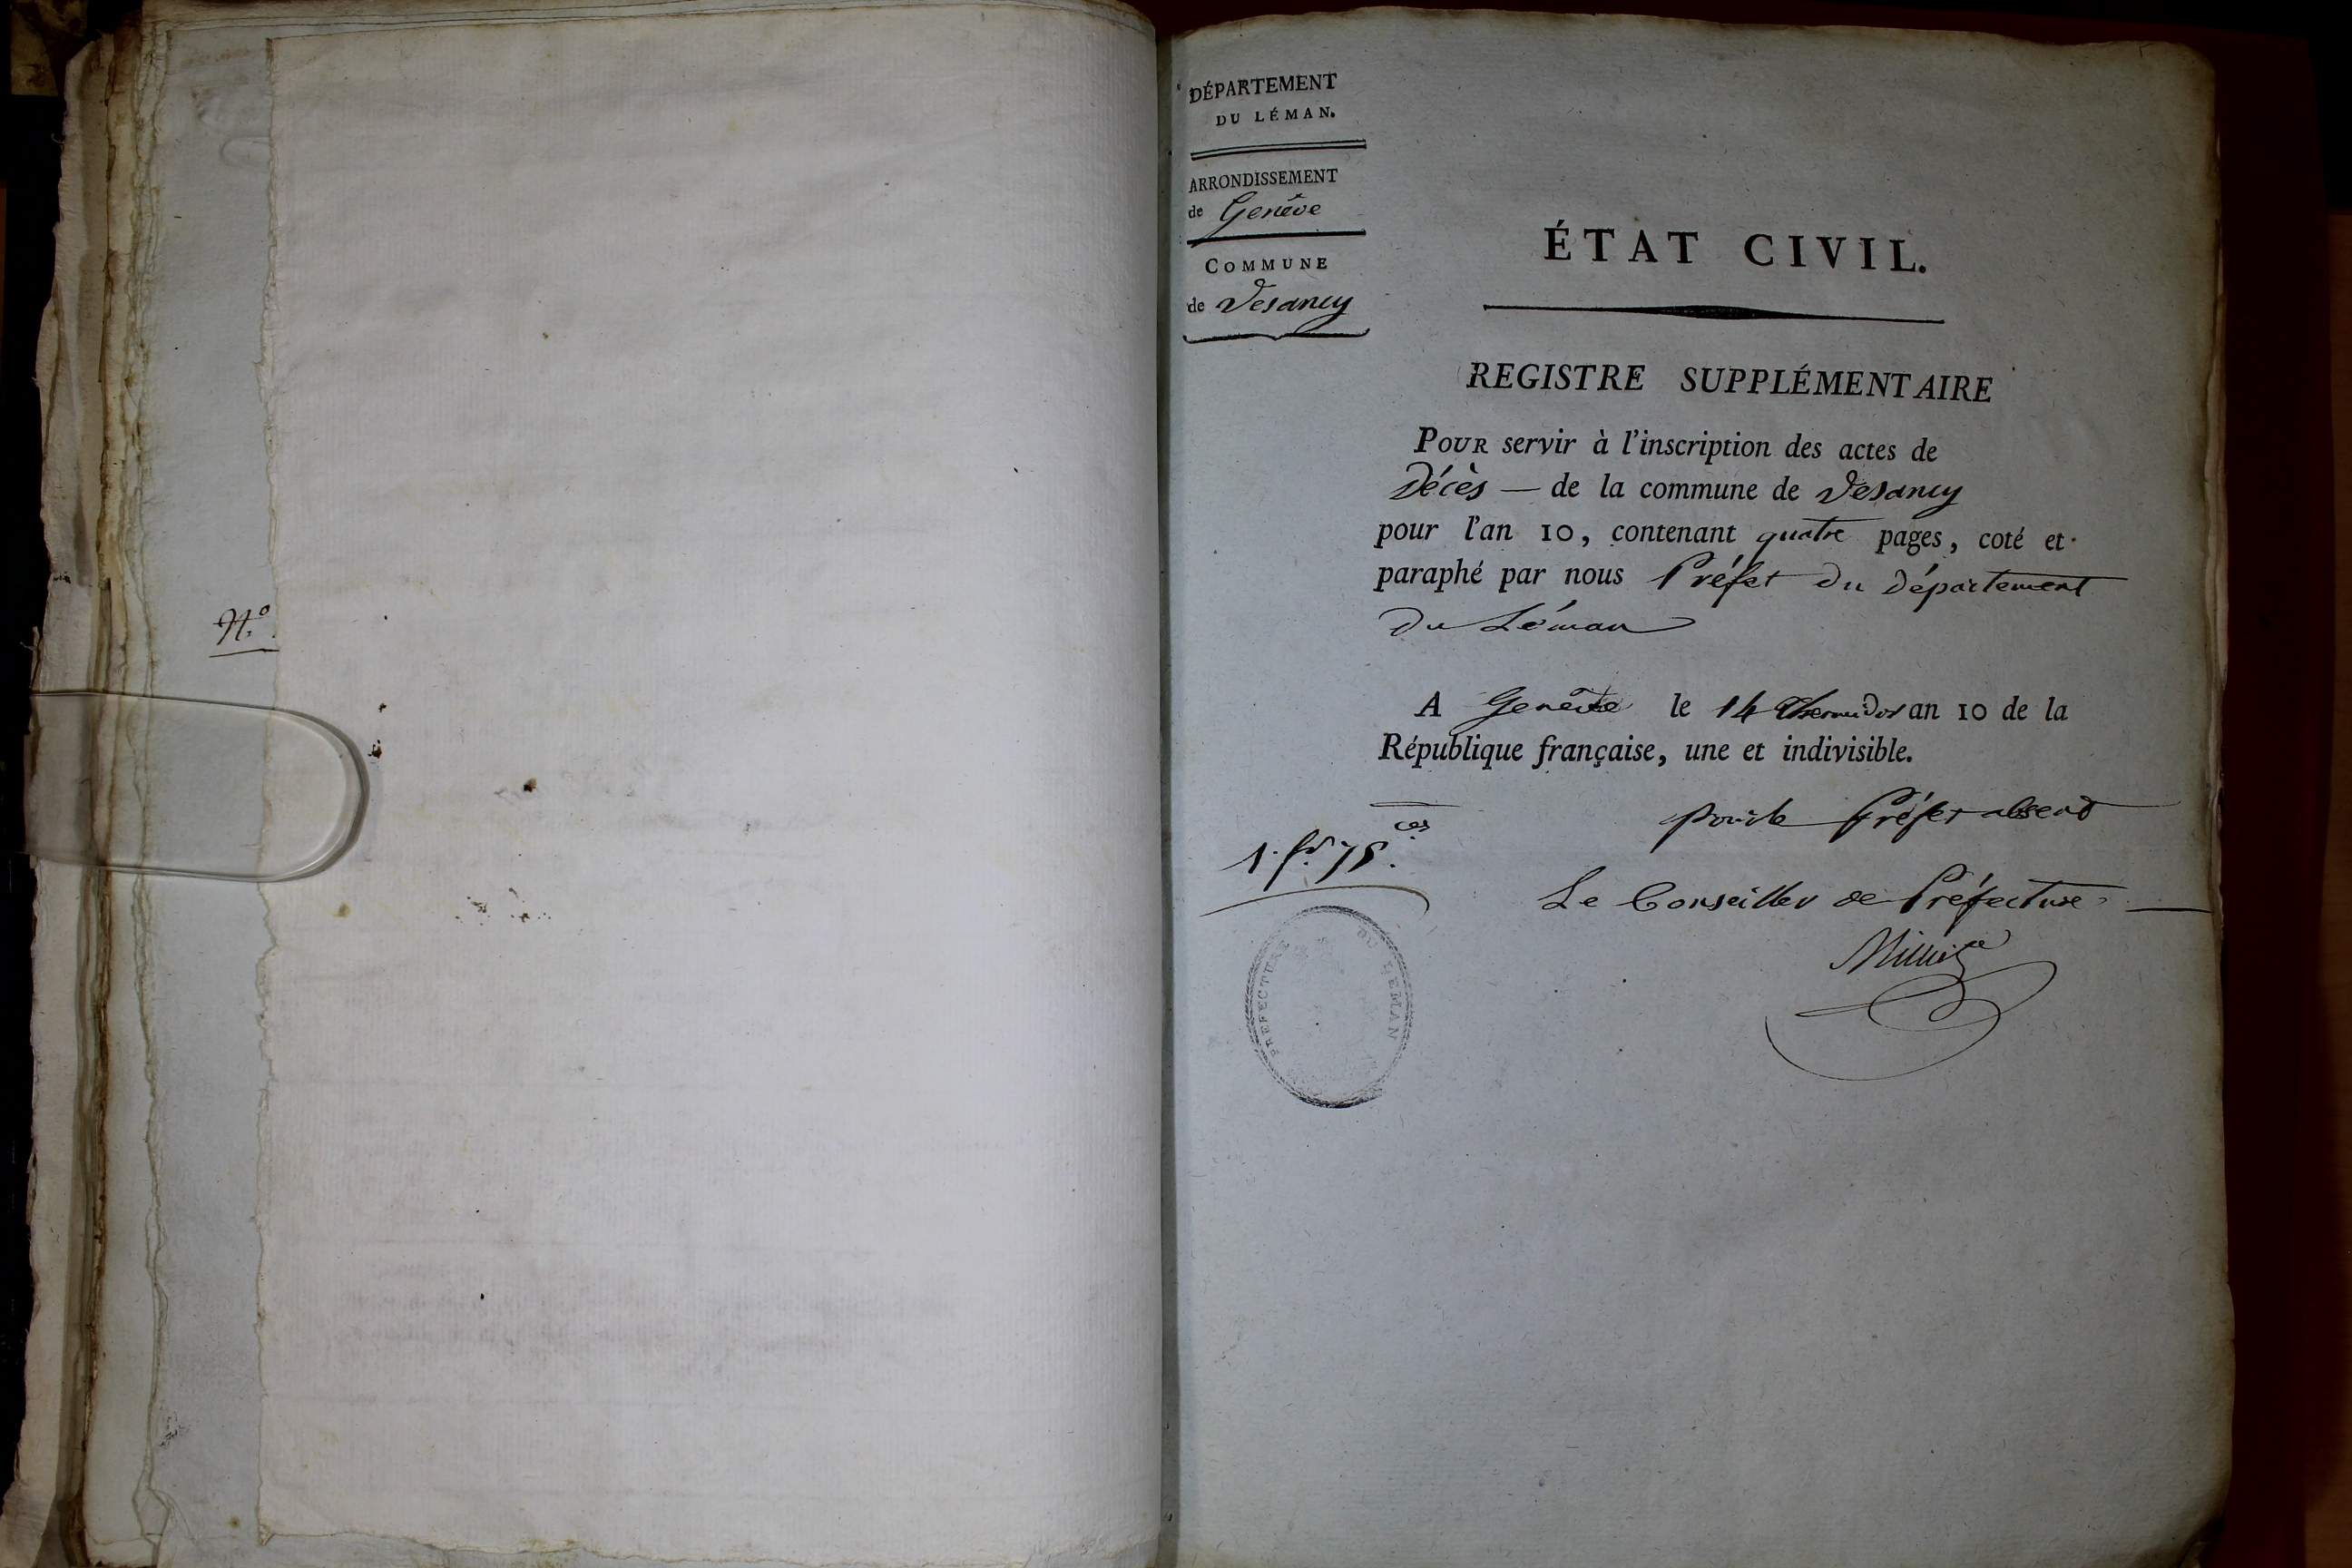 N.o
DÉPARTEMENT
DU LÉMAN.
ARRONDISSEMENT
de Genêve
COMMUNE
de Vesancy
ÉTAT CIVIL.
REGISTRE SUPPLÉMENTAIRE
POUR servir à l'inscription des actes de
Décès — de la commune de Vesancy
pour l'an 10, contenant quatre pages, coté et
paraphé par nous Préfet du département
du Léman
A Genève le 14 Thermidor an 10 de la
République française, une et indivisible.
pour le Préfet absent
1. fr 75. ces
Le Conseiller de Préfecture
PREFECTURE DU LEMAN